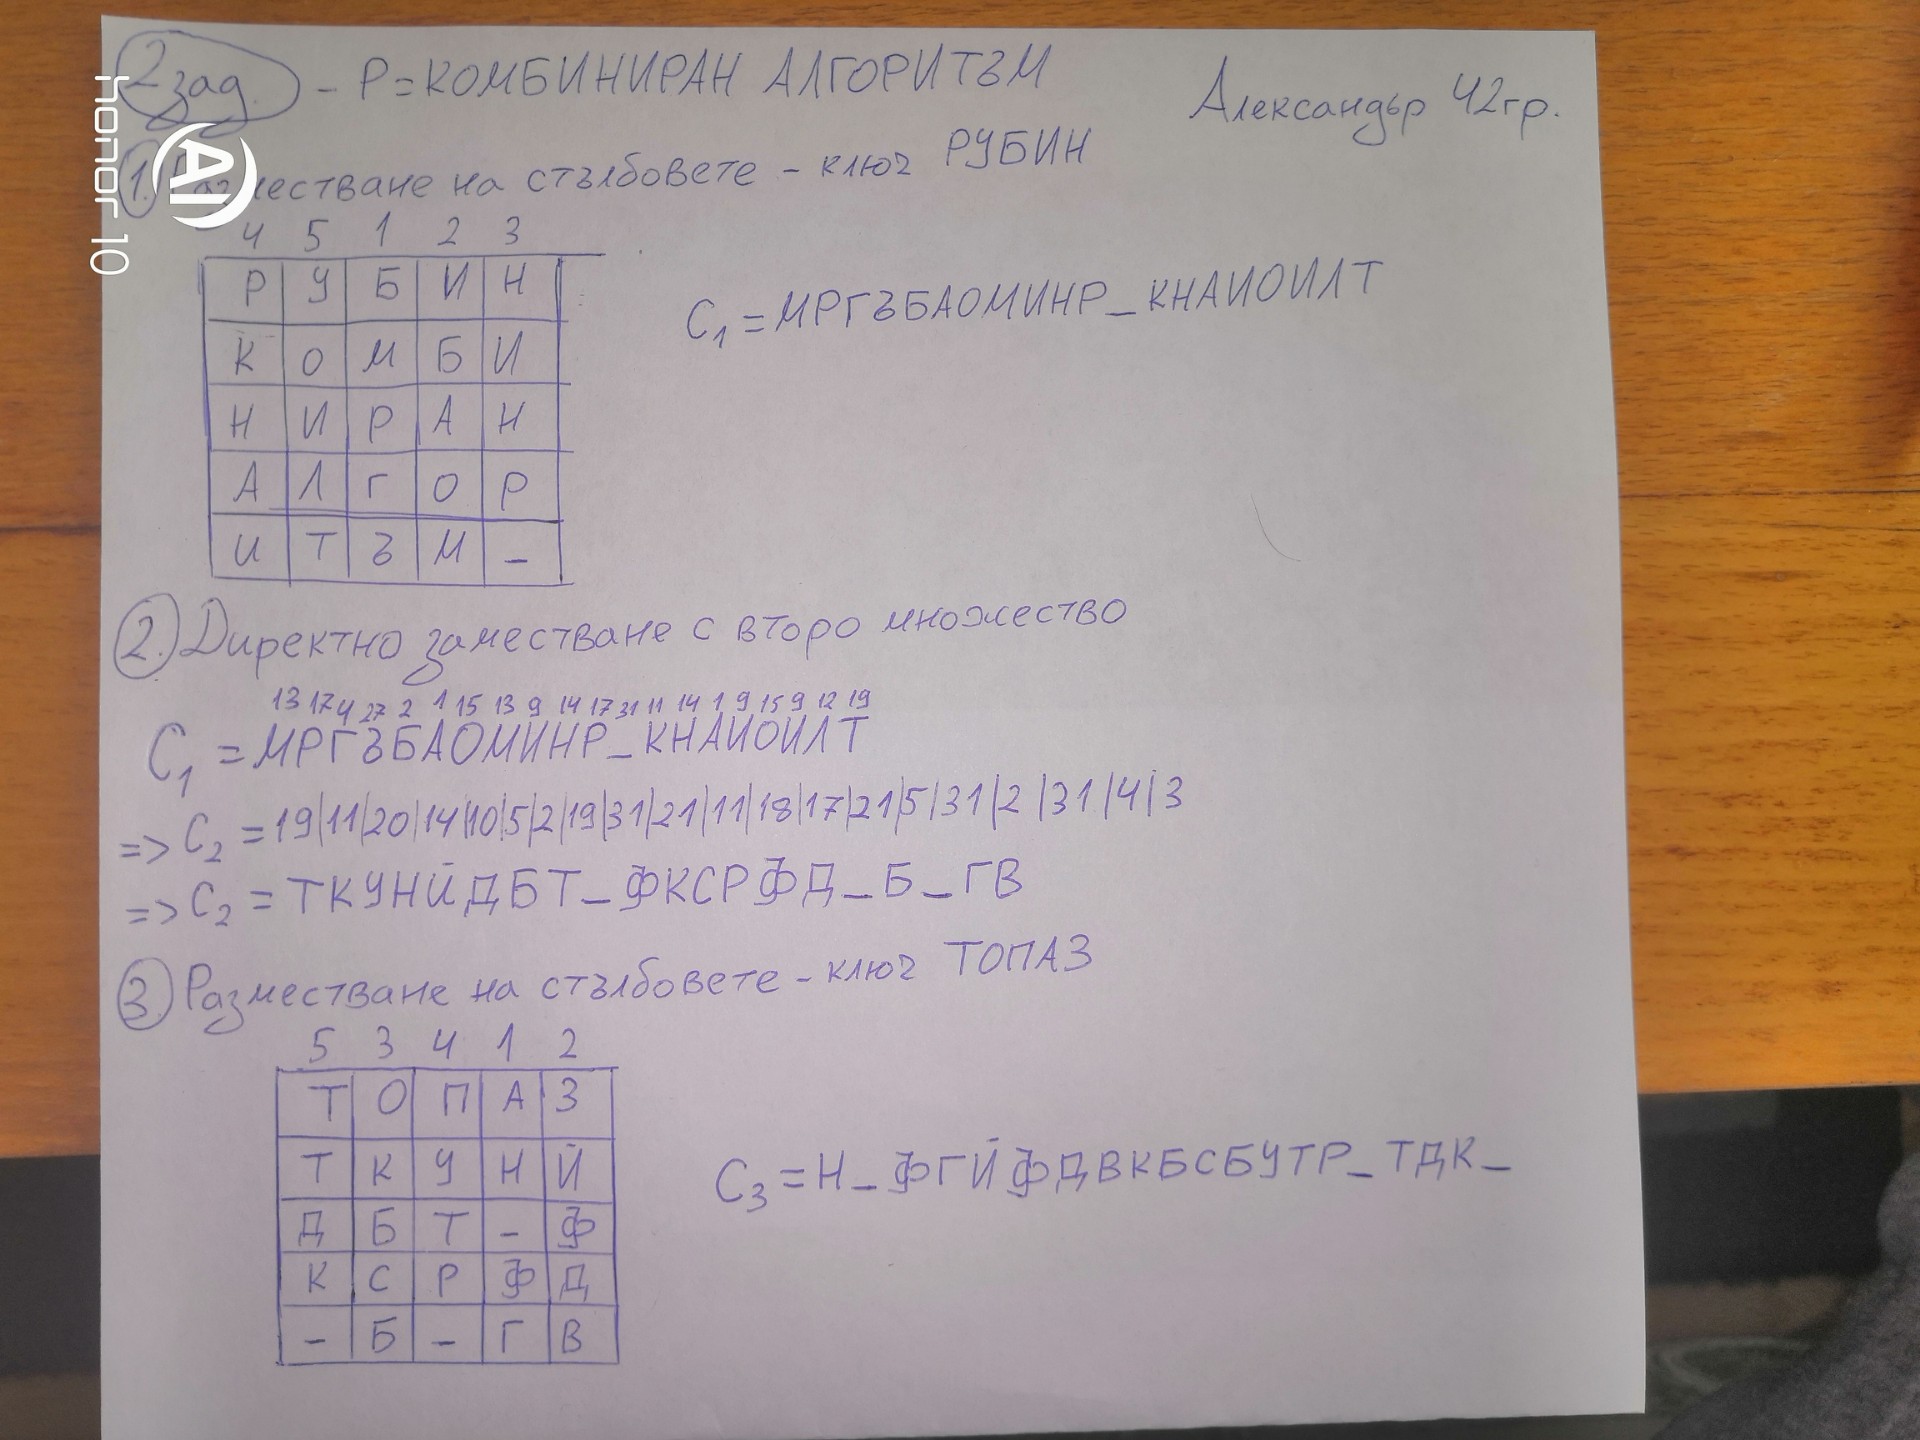 2зад. - P=КОМБИНИРАН АЛГОРИТЪМ
Александър 42гр.
1. Разместване на стълбовете - ключ РУБИН
4 5 1 2 3
Р У Б И Н
К О М Б И
Н И Р А Н
А Л Г О Р
И Т Ъ М _
C1 = МРГЪБАОМИНР_КНАИОИЛТ
2. Директно заместване с второ множество
13 17 4 27 2 1 15 13 9 14 17 31 11 14 1 9 15 9 12 19
C1 = МРГЪБАОМИНР_КНАИОИЛТ
=> C2 = 19|11|20|14|10|5|2|19|31|21|11|18|17|21|5|31|2|31|4|3
=> C2 = ТКУНЙДБТ_ФКСРФД_Б_ГВ
3. Разместване на стълбовете - ключ ТОПАЗ
5 3 4 1 2
Т О П А З
Т К У Н Й
Д Б Т _ Ф
К С Р Ф Д
_ Б _ Г В
C3 = Н_ФГЙФДВКБСБУТР_ТДК_
honor 10
AI